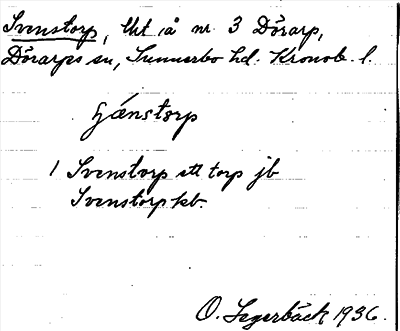 Svenstorp, lht å nr 3 Dörarp,
Dörarps sn, Sunnerbo hd. Kronob. l.
svänstorp
1 Svenstorp ett torp jb
Svenstorp kb.
O. Segerbäck 1936.